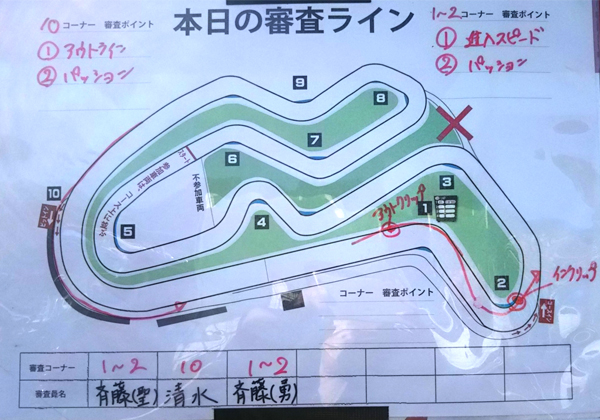 本日の審査ライン
10コーナー 審査ポイント
① アウトライン
② パッション
1~2コーナー 審査ポイント
① 進入スピード
② パッション
9
8
7
6
スタート
不参加車両
10
5
4
3
1
アウトクリップ
2
インクリップ
コーナー 審査ポイント
審査コーナー 1~2 10 1~2
審査員名 斉藤(聖) 清水 斉藤(勇)